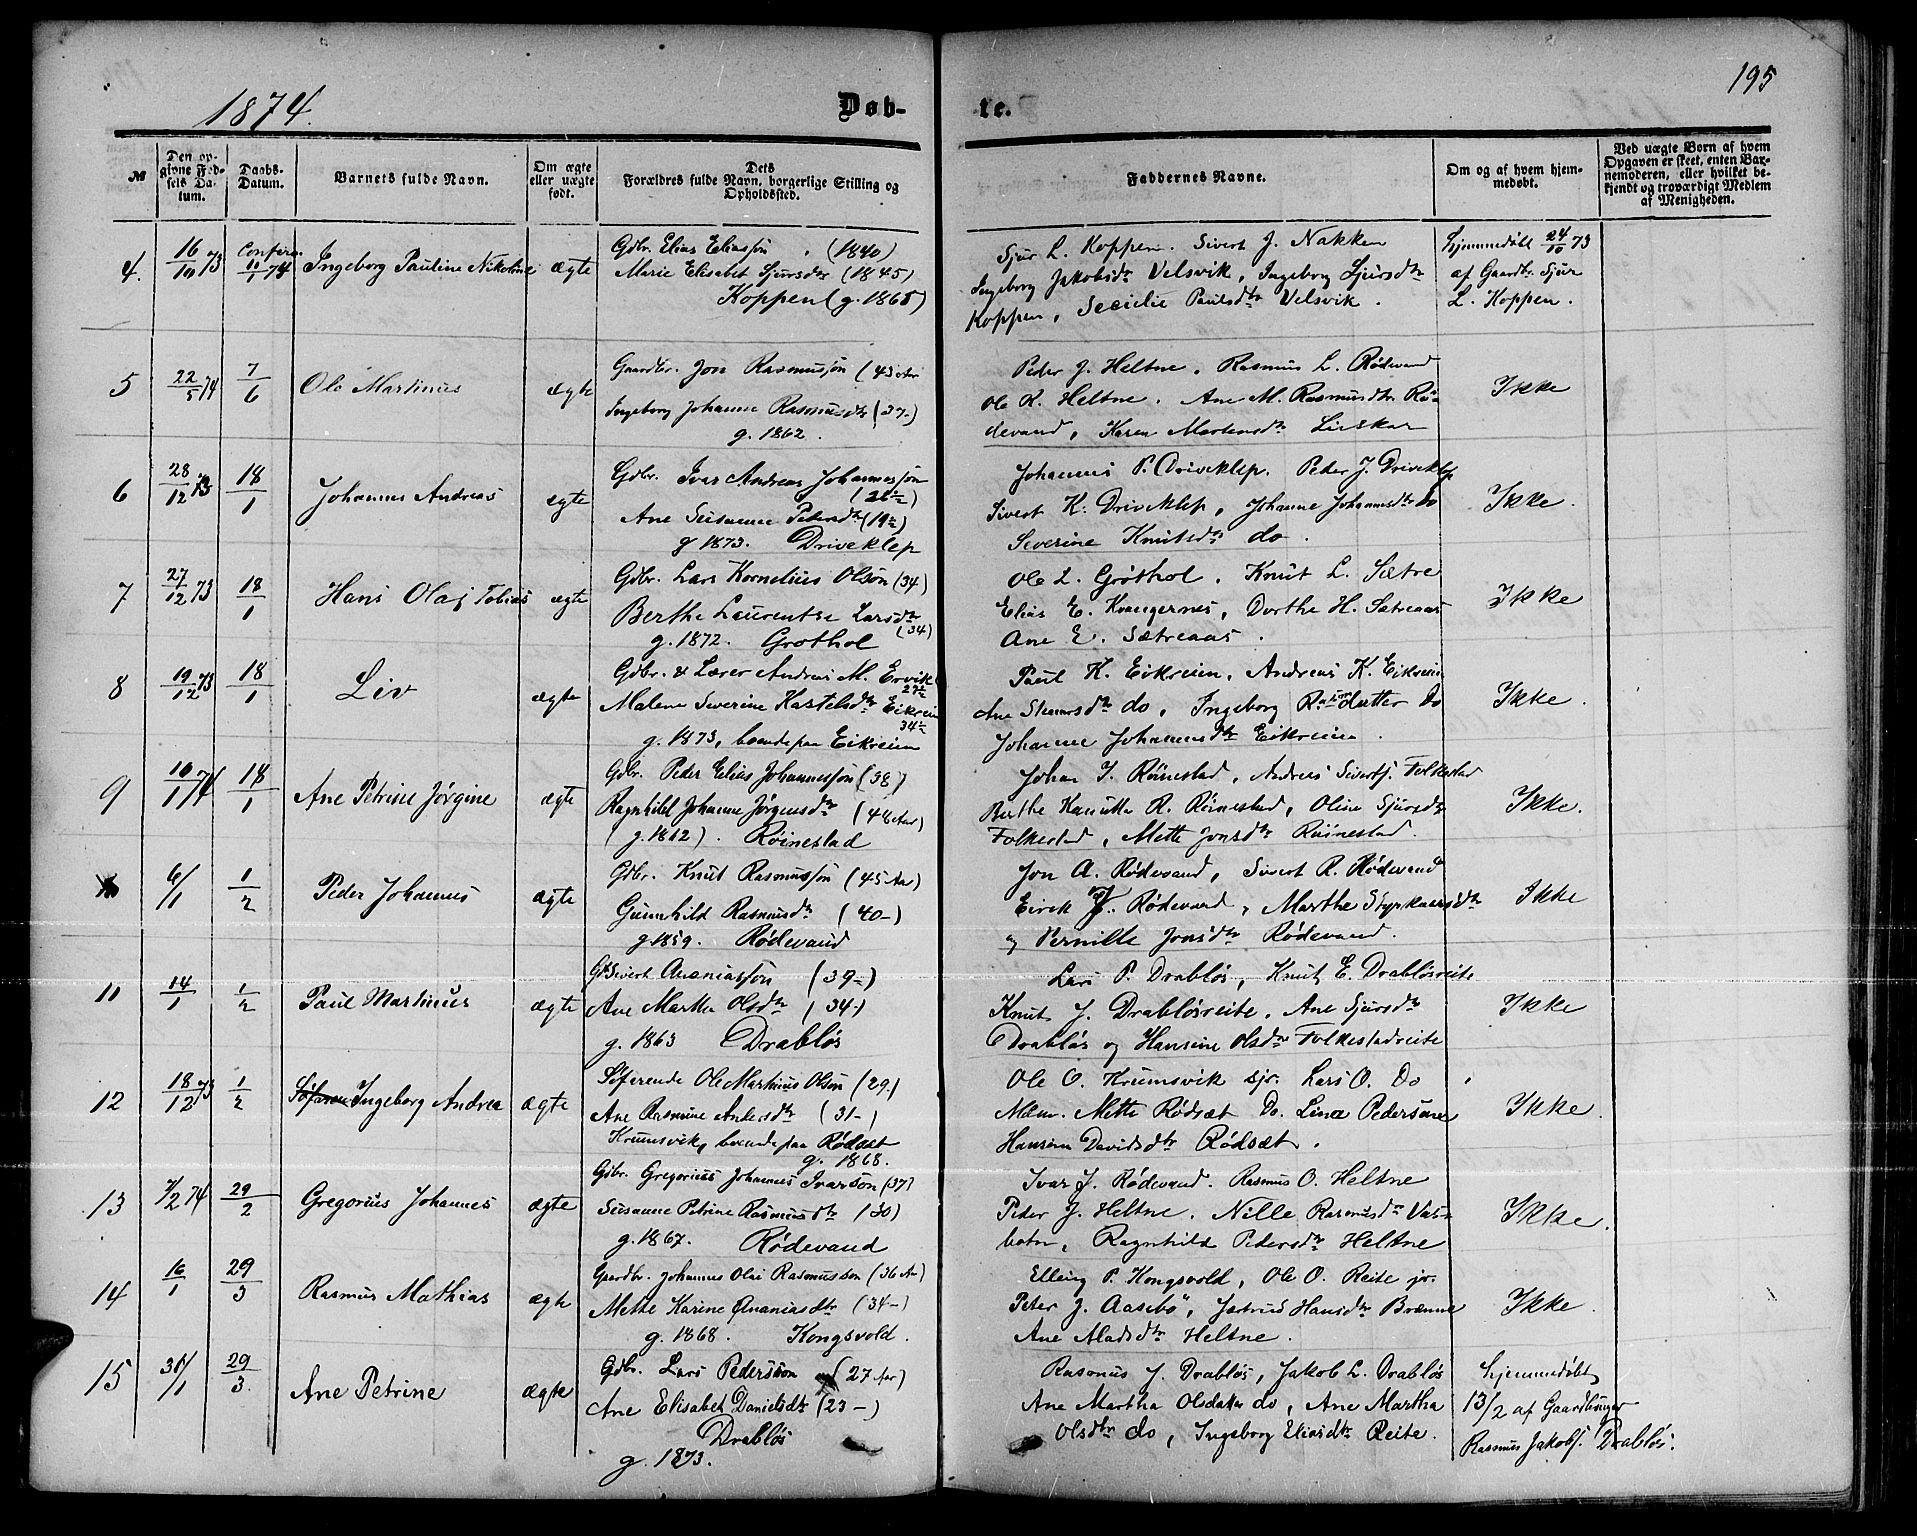 1874.
Døb-
te.
195
№
Den op-
givne Fød-
sels Da-
tum.
Daabs-
Datum.
Barnets fulde Navn.
Om ægte
eller uægte
født.
Dets
Forældres fulde Navn, borgerlige Stilling og
Opholdssted.
Faddernes Navne.
Om og af hvem hjem-
medøbt.
Ved uægte Børn af hvem
Opgaven er skeet, enten Bar-
nemoderen, eller hvilket be-
kjendt og troværdigt Medlem
af Menigheden.
4. 16/10 73 11/1 74 Ingeborg Pauline Nikoline ægte
Gdbr. Elias Eliassøn (1840)
Marie Elisabet Sjursdtr (1845)
Koppen (g. 1868)
Sjur L. Koppen. Sivert J. Nakken
Ingeborg Jakobsdtr Velsvik, Ingeborg Sjursdtr
Koppen, Secielie Paulsdtr Velsvik.
Hjemmedøbt 24/10 73
af Gaardbr. Sjur
L. Koppen.
5 22/5 74 7/6 Ole Martinus ægte
Gaardbr. Jon Rasmussøn (43 Aar
Ingeborg Johanne Rasmusdtr (37-)
g. 1862.
Peder J. Heltne, Rasmus L. Rødevand
Ole R. Heltne. Ane M. Rasmusdtr Rø-
devand, Karen Martensdtr Lirskar
Ikke
6 28/12 73 18/1 Johannes Andreas ægte
Gdbr. Ivar Andreas Johannessøn
(26-)
Ane Susanne Pedersdtr (19-)
g 1873. Driveklep
Johannes P. Driveklep. Peder J. Driveklep
Sivert K. Driveklep, Johanne Johannesdtr do
Severine Knutsdtr do.
Ikke.
7 27/12 73 18/1 Hans Olaj Tobias ægte
Gdbr. Lars Kornelius Olsøn (34)
Berthe Laurentse Larsdtr
(34)
g. 1872. Grøthol
Ole L. Grøthol, Knut L. Sætre
Elias E. Kvangernes, Dorthe H. Sætreaas
Ane E. Sætreaas.
Ikke
8 19/12 73 18/1 Liv ægte
Gdbr. & Lærer Andreas M. Ervik
27-
Malene Severine Kastelsdtr Eikreim
34-
g. 1873, boende paa Eikreim
Paul K. Eikreim, Andreas K. Eikreim
Ane do, Ingeborg Datter Do
Johanne Johannesdtr Eikreim.
Ikke.
9 10/1 74 18/1 Ane Petrine Jørgine ægte
Gdbr. Peder Elias Johannessøn (38)
Ragnhild Johanne Jørgensdtr (48 Aar)
(g. 1862). Røinestad
Johan J. Røinestad, Andreas Sivertsj. Folkestad
Berthe R. Røinestad, Oline Sjursdtr
Folkestad, Mette Jonsdtr Røinestad.
Ikke.
6/1 1/2 Peder Johannes ægte
Gdbr. Knut Rasmussøn (45 Aar)
Gunnhild Rasmusdtr (40-)
g. 1859. Rødevand
Jon A. Rødevand, Sivert R. Rødevand
Eirik J. Rødevand, Marthe Styrkaarsdtr
og Pernille Jonsdtr Rødevand.
Ikke
11 14/1 1/2 Paul Martinus ægte
Gb Sivert Ananiassøn (39-)
Ane Marthe Olsdtr (34)
g. 1863 Drabløs
Lars P. Drabløs, Knut E. Drabløsreite
Knut J. Drabløsreite, Ane Sjursdtr
Drabløs og Hansine Olsdtr Folkestadreite
Ikke
12 18/12 73 1/2 Ingeborg Andrea ægte
Søfarende Ole Martinus Olsøn (29)
Ane Rasmine Andersdtr (31-)
Krumsvik, boende paa Rødsæt
g. 1868.
Ole O. Krumsvik sjr. Lars O. Do
Mdm. Mette Rødsæt Do. Lina Pedersine
Hansine Davidsdtr Rødsæt.
Ikke.
13 1/2 74 29/2 Gregorius Johannes ægte
Gdbr. Gregorius Johannes Ivarsøn (37)
Susanne Petrine Rasmusdtr (30)
g. 1867. Rødevand
Ivar J. Rødevand. Rasmus O. Heltne
Peder J. Heltne, Nille Rasmusdtr Vass-
botn, Ragnhild Pedersdtr Heltne
Ikke.
14 16/1 29/3 Rasmus Mathias ægte
Gaardbr. Johannes Olai Rasmussøn (36 Aa)
Mette Karine Ananiasdtr (34-)
g. 1868. Kongsvold.
Elling P. Kongsvold, Ole O. Reite jr.
Peter J. Aasebø, Jertrud Hansdtr Brænne
Ane Madsdtr Heltne.
Ikke.
15 31/1 29/3. Ane Petrine ægte
Gdbr. Lars Pederssøn (27 Aar)
Ane Elisabet Danielsdtr (23-)
Drabløs
g. 1873.
Rasmus J. Drabløs, Jakob L. Drabløs
Ane Martha Olsdatter do, Ane Martha
Olsdtr do, Ingeborg Eliasdtr Reite.
Hjemmedøbt
13/2 af Gaardbruger
Rasmus Jakobs. Drabløs.